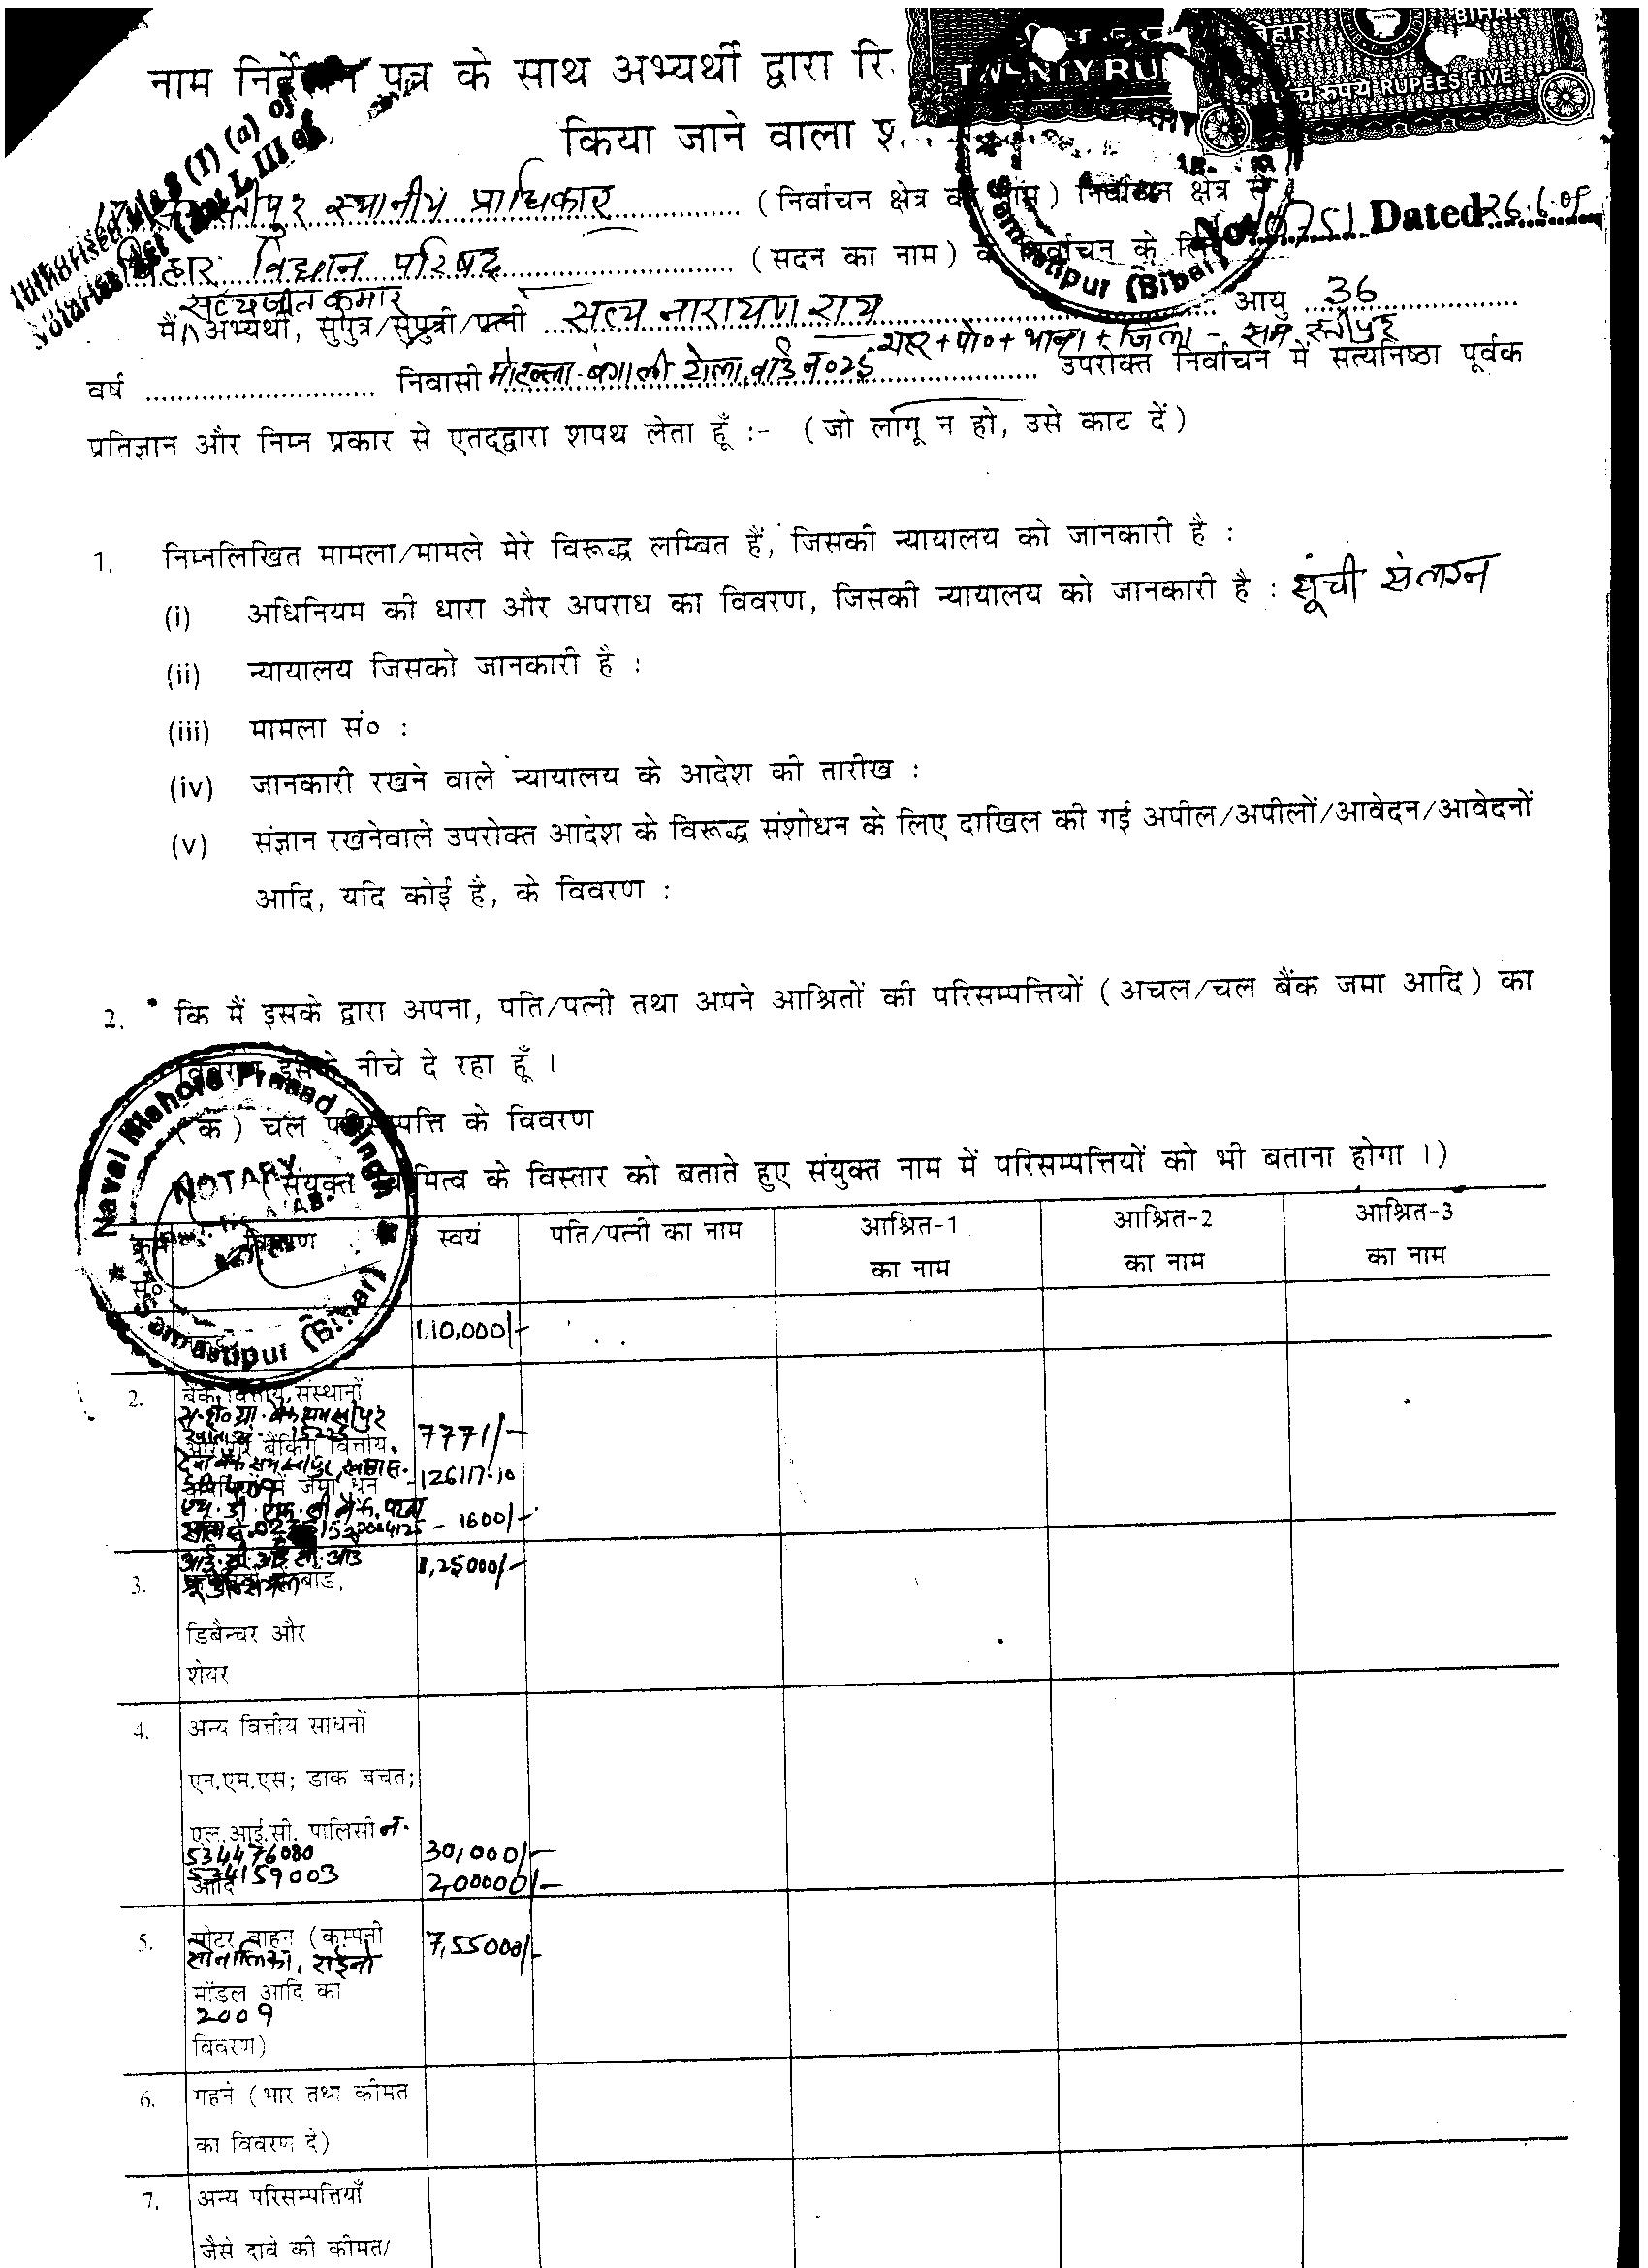 TWENTY RU
बिहार
BIHAR
PATNA
रुपये RUPEES FIVE
नाम निर्देशन पत्र के साथ अभ्यर्थी द्वारा रि
किया जाने वाला श
समस्तीपुर स्थानीय प्राधिकार (निर्वाचन क्षेत्र का नाम) निर्वाचन क्षेत्र से
No. Dated 26.6.09
बिहार विधान परिषद (सदन का नाम) के निर्वाचन के लि
Samastipur (Bihar)
सत्यजीत कुमार
मैं अभ्यर्थी, सुपुत्र/सुपुत्री/पत्नी सत्य नारायण राय आयु 36
शहर + पो० + थाना + जिला - समस्तीपुर
वर्ष निवासी मोहल्ला-बंगाली टोला, वार्ड न० 25 उपरोक्त निर्वाचन में सत्यनिष्ठा पूर्वक
प्रतिज्ञान और निम्न प्रकार से एतद्द्वारा शपथ लेता हूँ :- (जो लागू न हो, उसे काट दें)
1. निम्नलिखित मामला/मामले मेरे विरूद्ध लम्बित हैं, जिसकी न्यायालय को जानकारी है :
(i) अधिनियम की धारा और अपराध का विवरण, जिसकी न्यायालय को जानकारी है : सूंची संलग्न
(ii) न्यायालय जिसको जानकारी है :
(iii) मामला सं० :
(iv) जानकारी रखने वाले न्यायालय के आदेश की तारीख :
(v) संज्ञान रखनेवाले उपरोक्त आदेश के विरूद्ध संशोधन के लिए दाखिल की गई अपील/अपीलों/आवेदन/आवेदनों
आदि, यदि कोई है, के विवरण :
2. कि मैं इसके द्वारा अपना, पति/पत्नी तथा अपने आश्रितों की परिसम्पत्तियों (अचल/चल बैंक जमा आदि) का
विवरण इसके नीचे दे रहा हूँ ।
(क) चल परिसम्पत्ति के विवरण
(संयुक्त स्वामित्व के विस्तार को बताते हुए संयुक्त नाम में परिसम्पत्तियों को भी बताना होगा ।)
Naval Kishore Prasad Singh
NOTARY
Samastipur (Bihar)
विवरण स्वयं पति/पत्नी का नाम आश्रित-1 आश्रित-2 आश्रित-3
सं० का नाम का नाम का नाम
1,10,000/-
2. बैंक, वित्तीय, संस्थानों
15225
बैंकिंग वित्तीय 7771/-
में जमा धन 126117.10
1600/-
1,25000/-
3.
डिबैन्चर और
शेयर
4. अन्य वित्तीय साधनों
एन.एम.एस; डाक बचत;
एल.आई.सी. पालिसी नं.
534476080 30,000/-
534159003 2,00000/-
आदि
5. मोटर वाहन (कम्पनी 7,55000/-
सोनालिका, राईनो
मॉडल आदि का
2009
विवरण)
6. गहने (भार तथा कीमत
का विवरण दें)
7. अन्य परिसम्पत्तियाँ
जैसे दावे की कीमत/